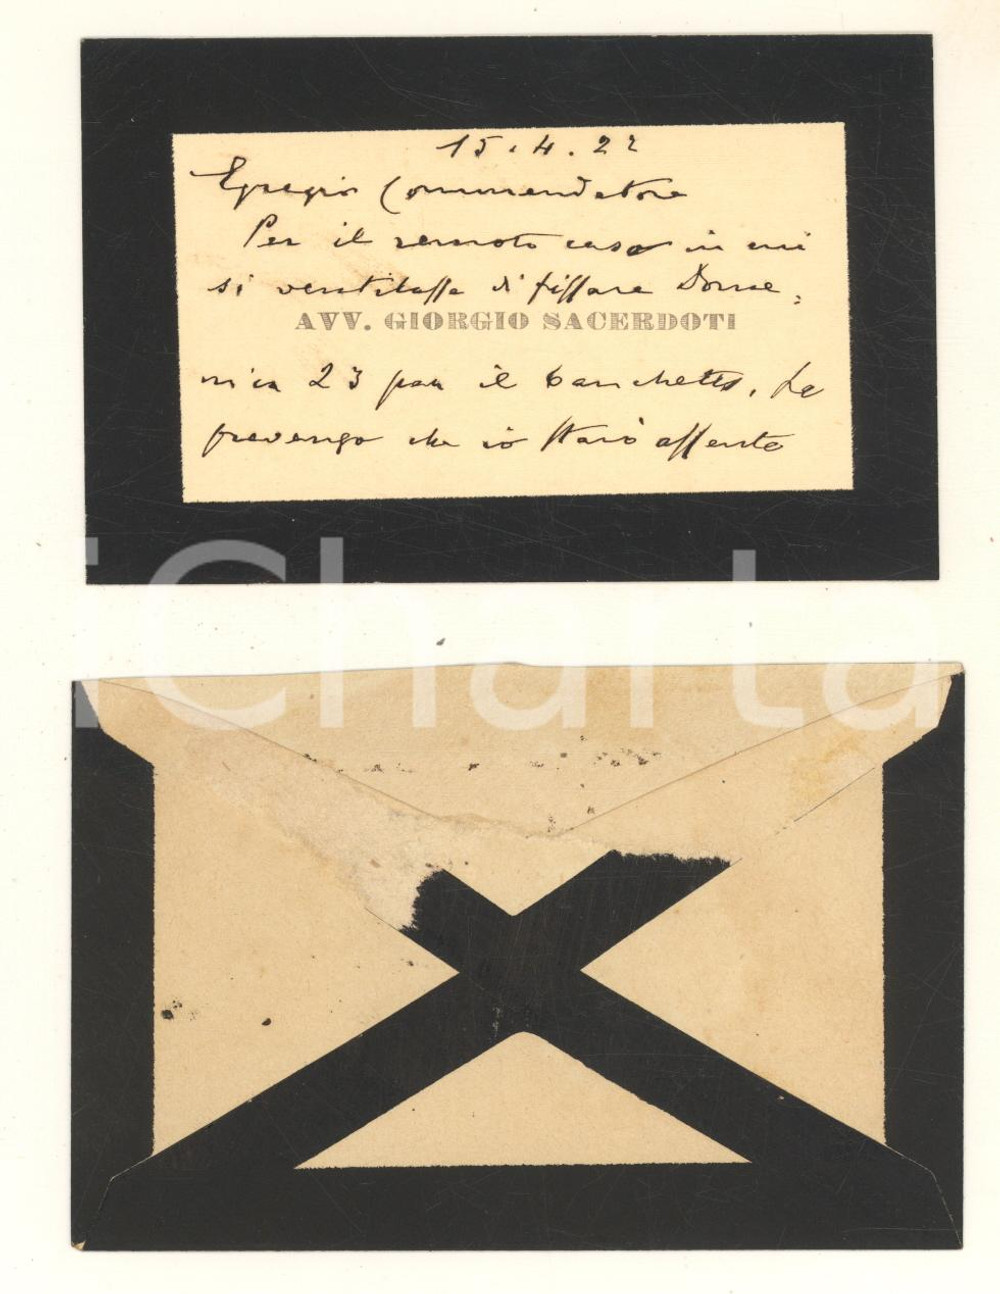 15.4.22
Egregio Commendatore
Per il remoto caso in cui
si ventilasse di fissare Dome=
AVV. GIORGIO SACERDOTI
nica 23 per il banchetto, La
prevengo che io starò assente
iCharta